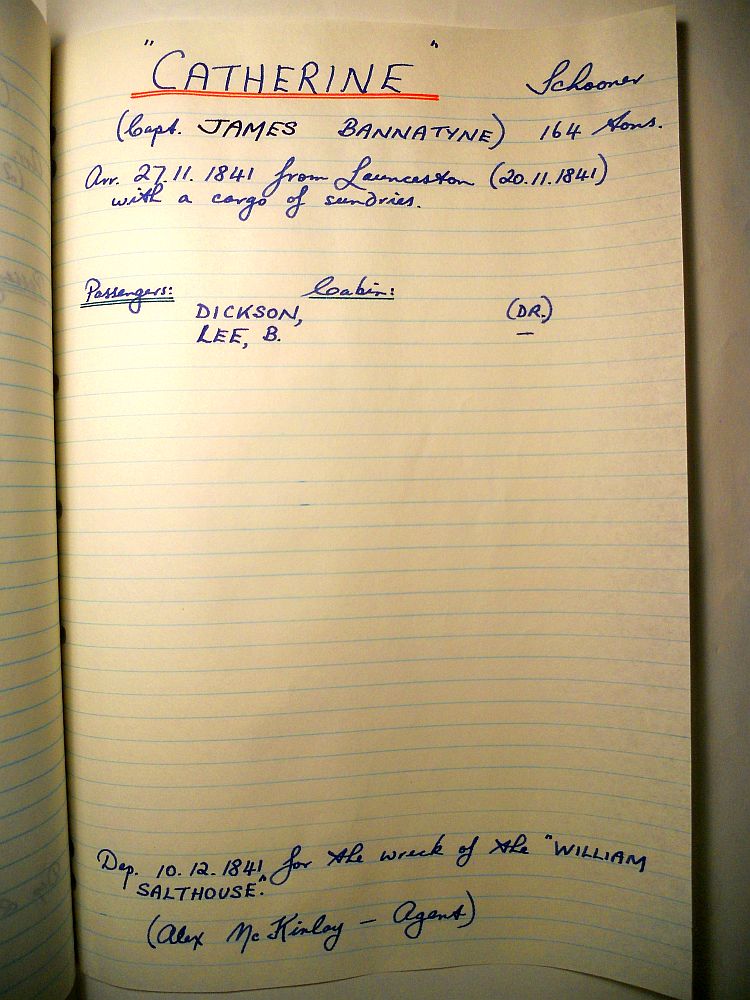 "CATHERINE" Schooner
(Capt. JAMES BANNATYNE) 164 tons.
Arr. 27.11.1841 from Launceston (20.11.1841)
with a cargo of sundries.
Passengers: Cabin:
DICKSON, (DR.)
LEE, B. —
Dep. 10.12.1841 for the wreck of the "WILLIAM
SALTHOUSE".
(Alex McKinlay – Agent)